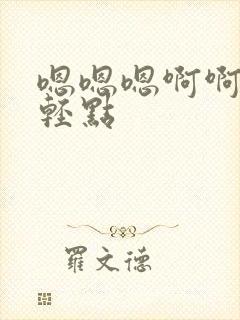 嗯嗯嗯啊啊
輕點
羅文德